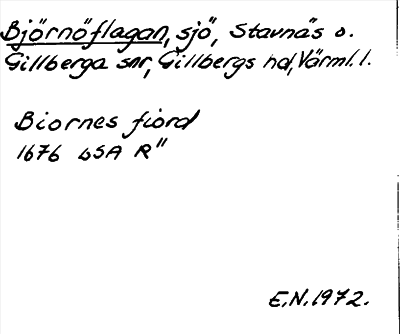 Björnöflagan, sjö, Stavnäs o.
Gillberga snr, Gillbergs hd, Värml. l.
Biornes fiord
1676 LSA R"
E.N. 1972.